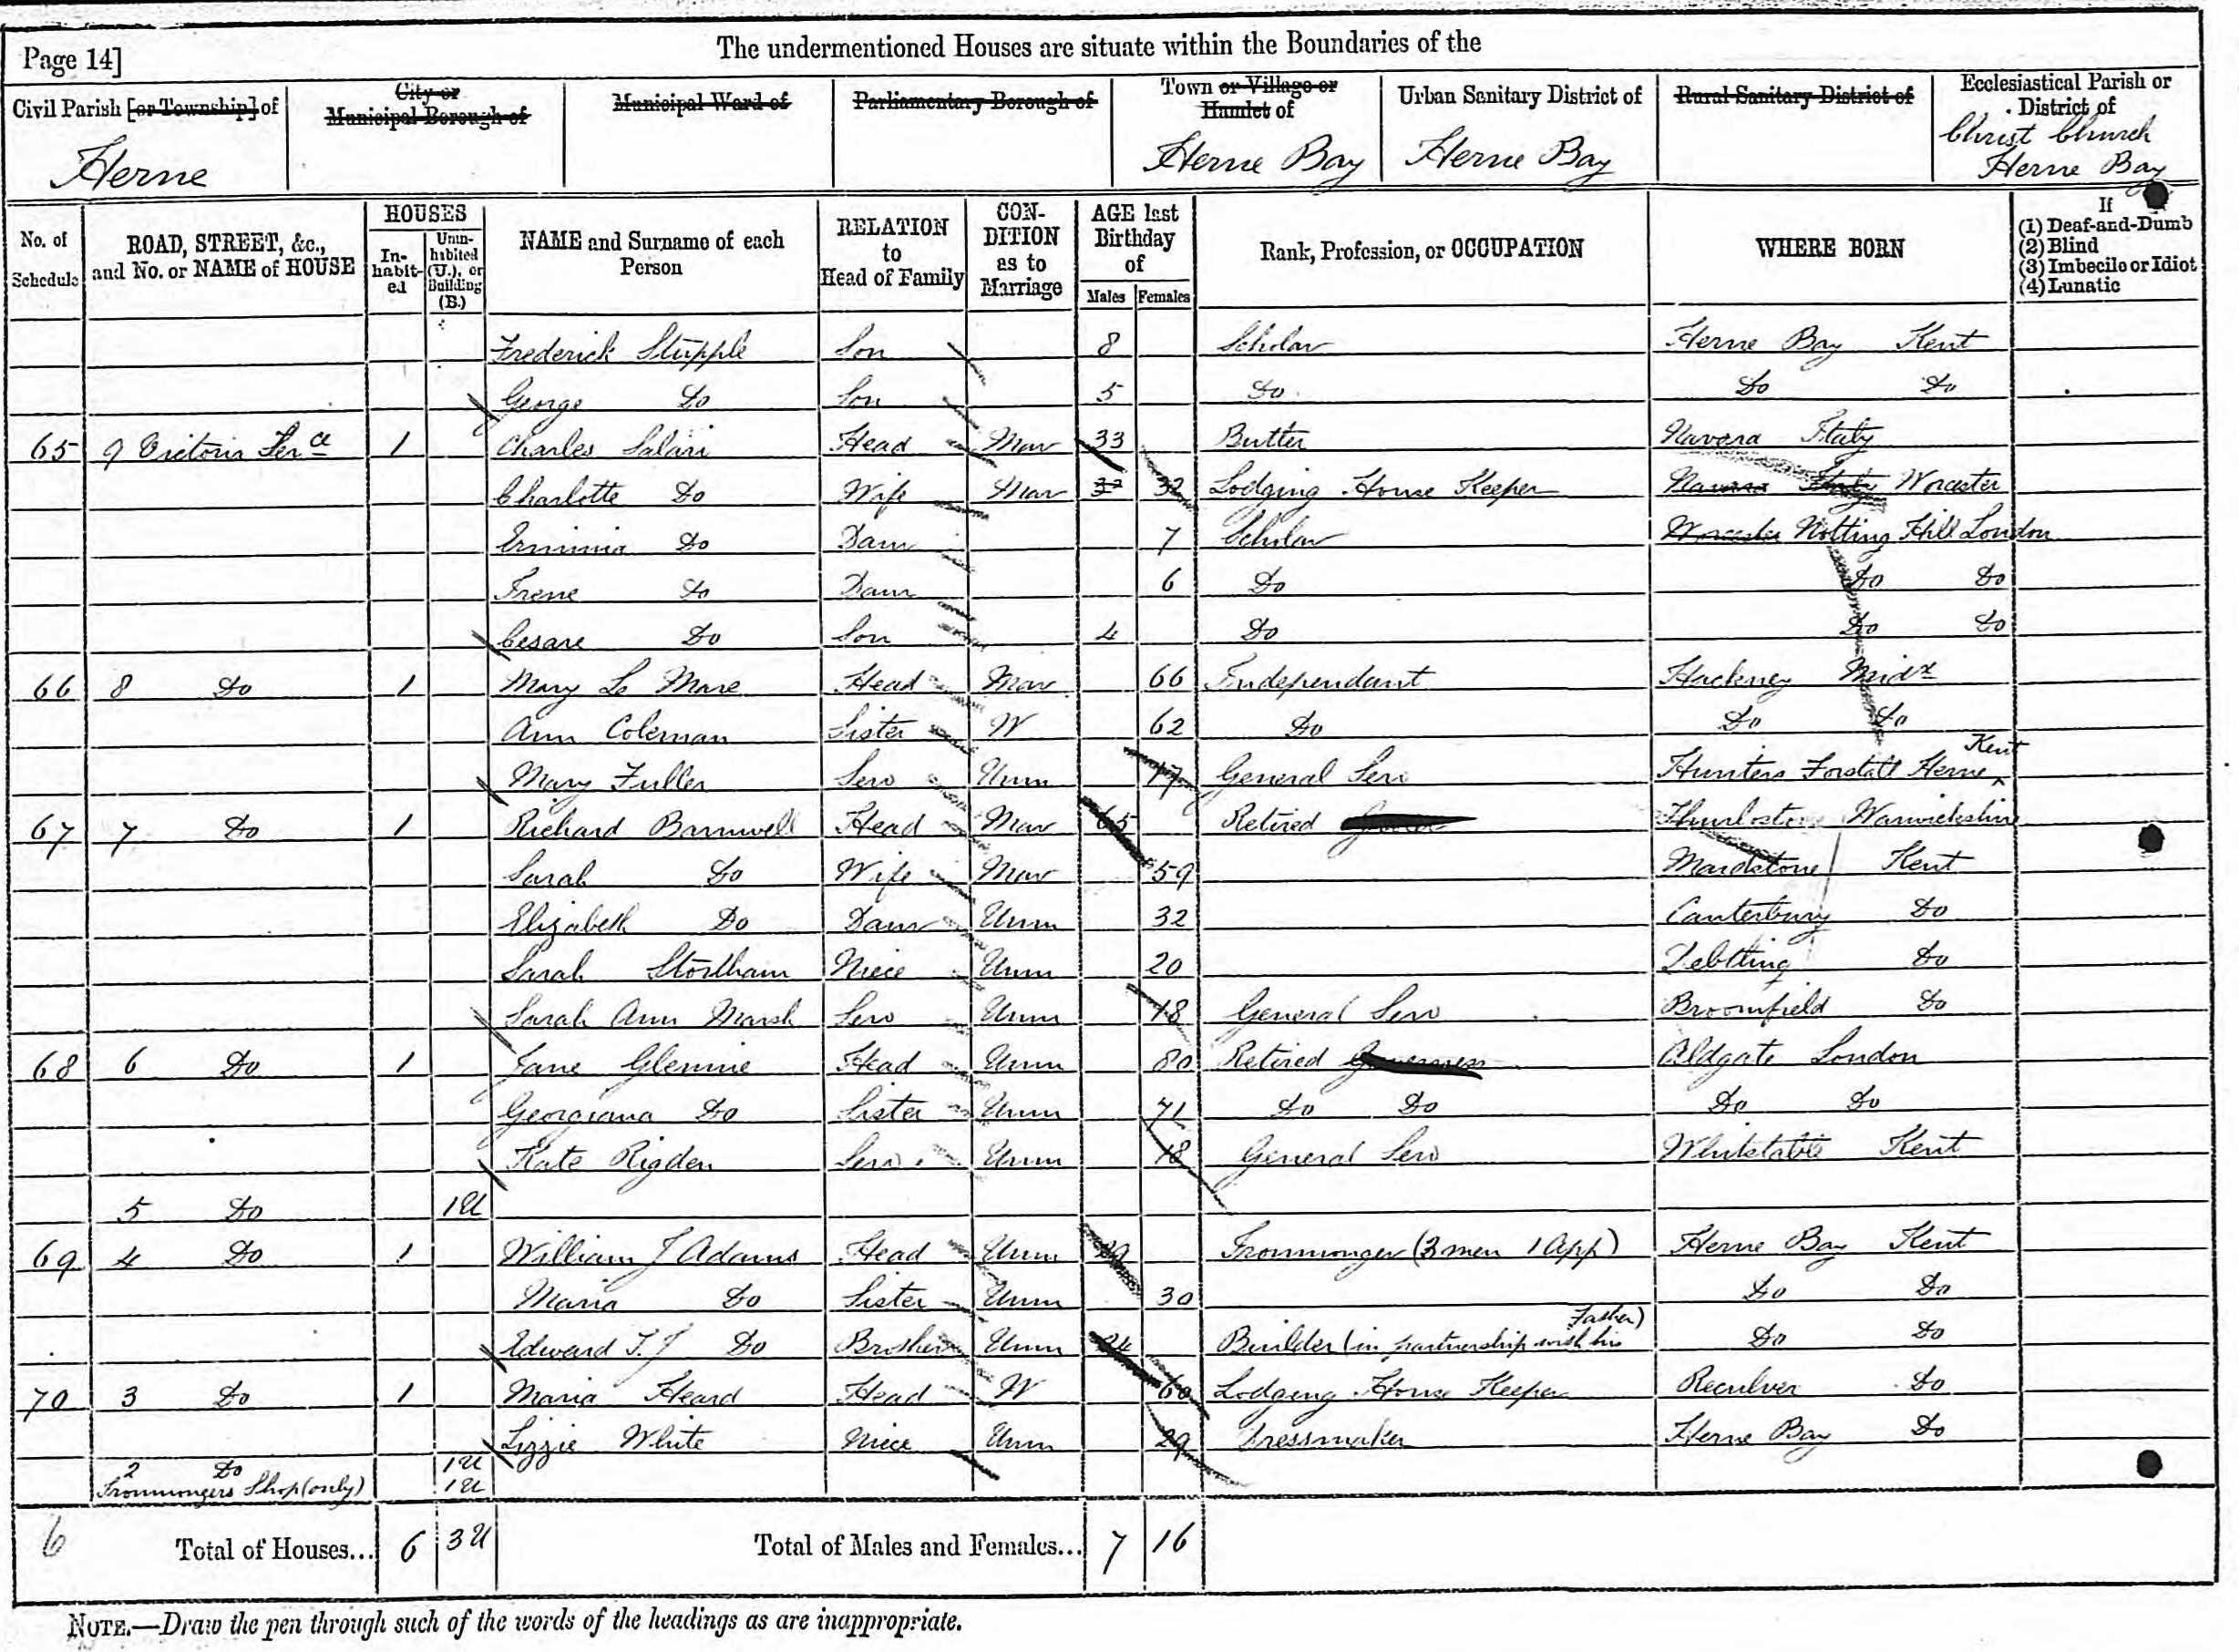 Page 14]
The undermentioned Houses are situate within the Boundaries of the
Civil Parish [or Township] of
City or
Municipal Borough of
Municipal Ward of
Parliamentary Borough of
Town or Village or
Hamlet of
Urban Sanitary District of
Rural Sanitary District of
Ecclesiastical Parish or
District of
Herne
Herne Bay
Herne Bay
Christ Church
Herne Bay
No. of
Schedule
ROAD, STREET, &c.,
and No. or NAME of HOUSE
HOUSES
In-
habit-
ed
Unin-
habited
(U.), or
Building
(B.)
NAME and Surname of each
Person
RELATION
to
Head of Family
CON-
DITION
as to
Marriage
AGE last
Birthday
of
Males
Females
Rank, Profession, or OCCUPATION
WHERE BORN
If
(1) Deaf-and-Dumb
(2) Blind
(3) Imbecile or Idiot
(4) Lunatic
Frederick Stupple Son 8 Scholar Herne Bay Kent
George Do Son 5 Do Do Do
65 9 Victoria Terce 1 Charles Salari Head Mar 33 Butler Navara Italy
Charlotte Do Wife Mar 32 32 Lodging House Keeper Navara Italy Worcester
Erminia Do Daur 7 Scholar Worcester Notting Hill London
Irene Do Daur 6 Do Do Do
Cesare Do Son 4 Do Do Do
66 8 Do 1 Mary Le Mare Head Mar 66 Independant Hackney Midx
Ann Coleman Sister W 62 Do Do Do
Mary Fuller Serv Unm 17 General Serv Hunters Forstall Herne Kent
67 7 Do 1 Richard Barnwell Head Mar 65 Retired Warwickshire
Sarah Do Wife Mar 59 Maidstone Kent
Elizabeth Do Daur Unm 32 Canterbury Do
Sarah Niece Unm 20 Debtling Do
Sarah Ann Marsh Serv Unm 18 General Serv Broomfield Do
68 6 Do 1 Jane Glennie Head Unm 80 Retired Governess Aldgate London
Georgiana Do Sister Unm 71 Do Do Do Do
Kate Rigden Serv. Unm 18 General Serv Whitstable Kent
5 Do 1U
69 4 Do 1 William J Adams Head Unm 29 Ironmonger (3 men 1 App) Herne Bay Kent
Maria Do Sister Unm 30 Do Do
Edward T. J Do Brother Unm 24 Builder (in partnership with his Father) Do Do
70 3 Do 1 Maria Heard Head W 60 Lodging House Keeper Reculver Do
Lizzie White Niece Unm 29 Dressmaker Herne Bay Do
2 Do 1U
Ironmongers Shop (only) 1U
6 Total of Houses... 6 3U Total of Males and Females... 7 16
NOTE.—Draw the pen through such of the words of the headings as are inappropriate.